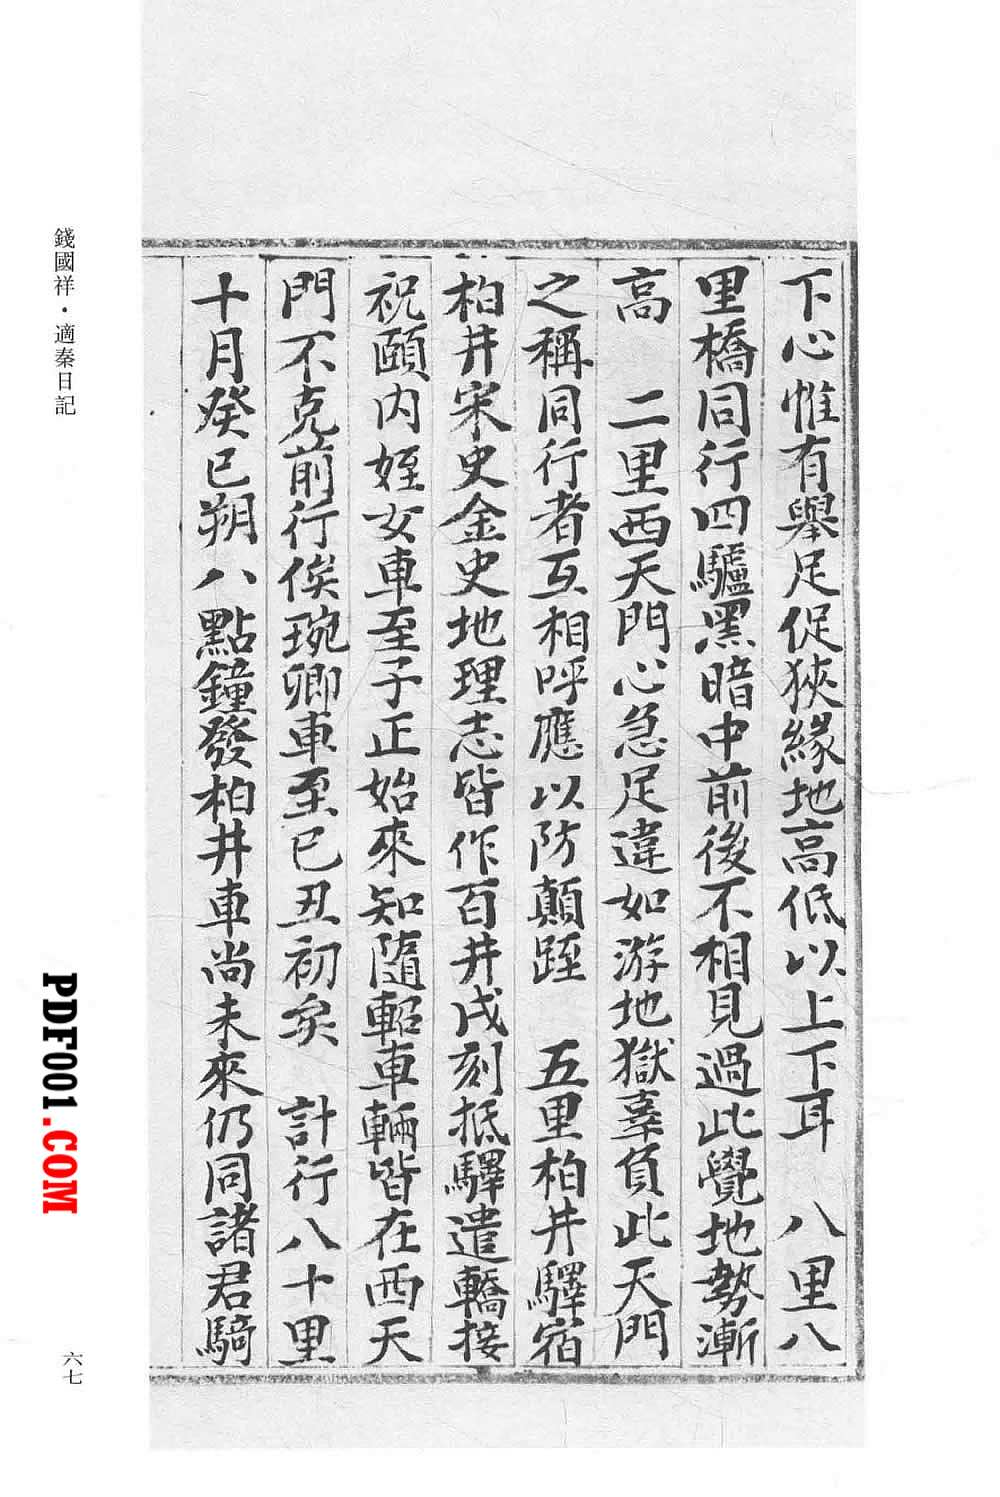 下心惟有舉足促狹緣地高低以上下耳　八里八
里橋同行四驢黑暗中前後不相見過此覺地勢漸
高　二里西天門心急足違如游地獄辜負此天門
之稱同行者互相呼應以防顛踁　五里柏井驛宿
柏井宋史金史地理志皆作百井戌刻抵驛遣轎接
祝頤內姪女車至子正始來知隨軺車輛皆在西天
門不克前行俟琬卿車至已丑初矣　計行八十里
十月癸巳朔八點鐘發柏井車尚未來仍同諸君騎
錢國祥·適秦日記
六七
PDF001.COM